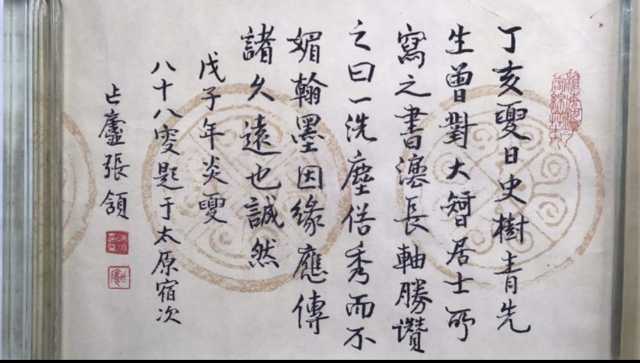 丁亥夏日史樹青先
生曾對大智居士所
寫之書長軸勝讚
之曰一洗塵俗秀而不
媚翰墨因緣應傳
諸久遠也誠然
戊子年炎夏
八十八叟題于太原宿次
廬張頷